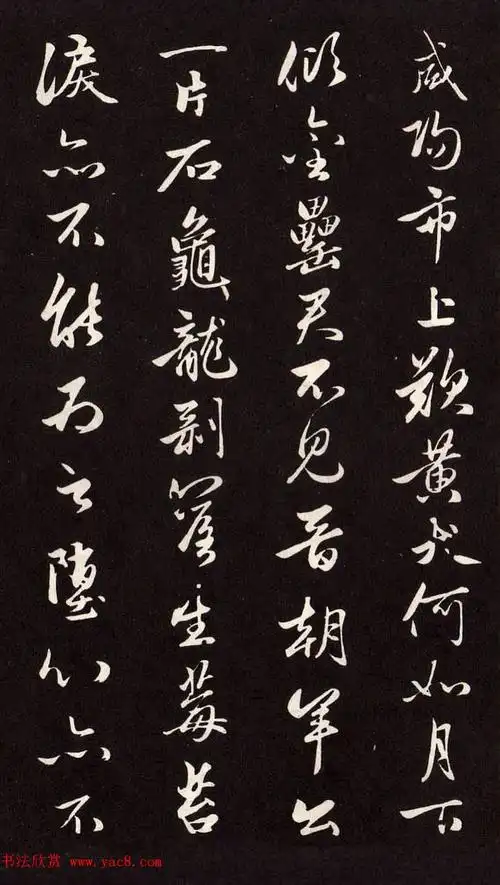 咸陽市上歎黃犬何如月下
傾金罍君不見晋朝羊公
一片石龜龍剝落生莓苔
淚亦不能為之墮心亦不
书法欣赏 www.yac8.com